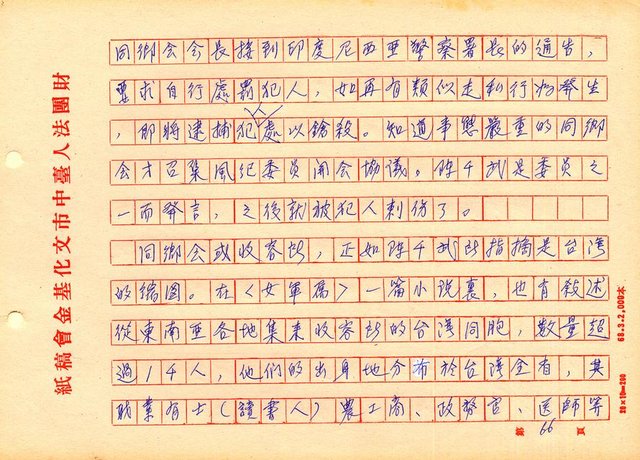 同鄉会会長接到印度尼西亜警察署長的通告，
要求自行處罰犯人，如再有類似走私行為發生
，即將逮捕犯處以鎗殺。知道事態嚴重的同鄉
会才召集風纪委员開会協議。陈千武是委员之
一而發言，之後就被犯人刺伤了。
同鄉会或收容所，正如陈千武所指摘是台湾
的縮図。在《女軍属》一篇小说裏，也有敍述
從東南亜各地集来收容所的台湾同胞，数量超
過1千人，他們的出身地分布於台湾全有，其
職業有士（讀書人）農工商、政警官、医師等
第 66 頁
財團法人臺中市文化基金會稿紙
68.3.2,000本
20×10=200